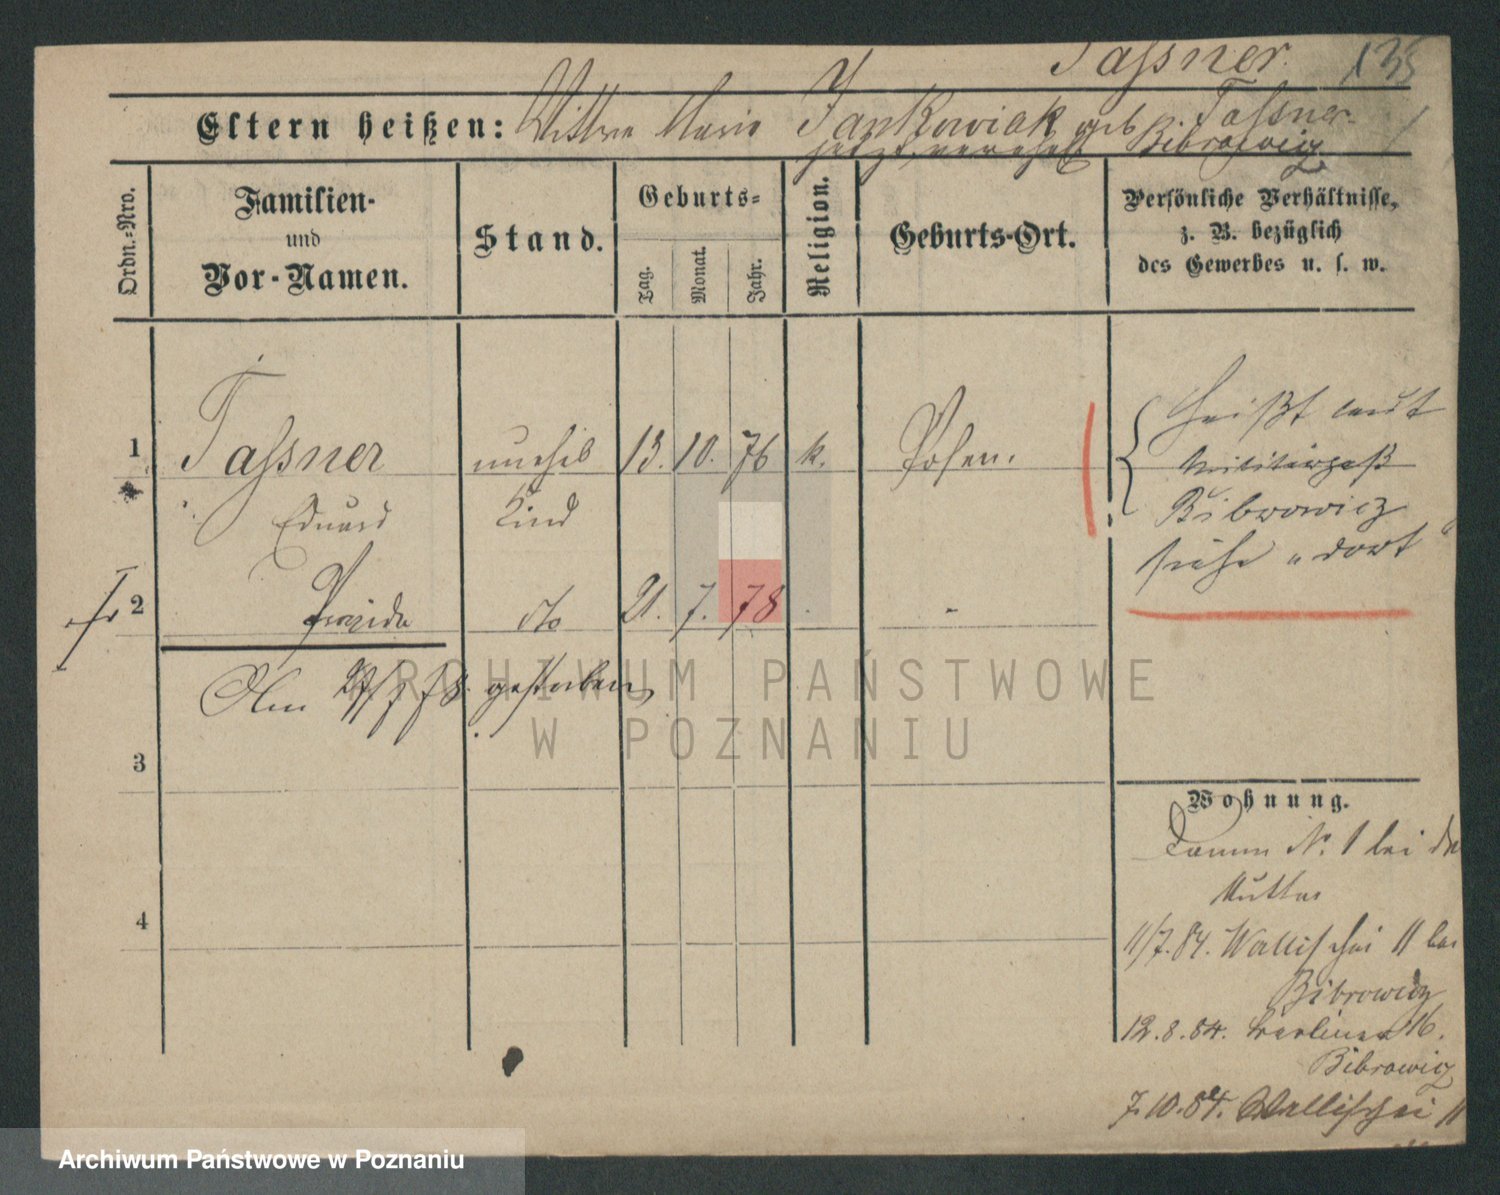 Tassner. 135
Eltern heißen: Wittwe Marie Jankowiak geb Tassner
jetzt verehel Bibrowicz
Ordn.-Nro.
Familien-
und
Vor-Namen.
Stand.
Geburts-
Tag.
Monat.
Jahr.
Religion.
Geburts-Ort.
Persönliche Verhältnisse,
z. B. bezüglich
des Gewerbes u. s. w.
1 Tassner unehel 13. 10. 76 k. Posen.
Eduard Kind
heißt laut
Militärpaß
Bibrowicz
siehe „dort“
2 dto 21. 7. 78 -
Am 27/7 78. gestorben
3
4
Wohnung.
Damm N. 1 bei der
Mutter
11/7.84. Wallischei 11 bei
Bibrowicz
12.8.84. Berliner 16.
Bibrowicz
7.10.84. Wallischei 11
ARCHIWUM PAŃSTWOWE
W POZNANIU
Archiwum Państwowe w Poznaniu